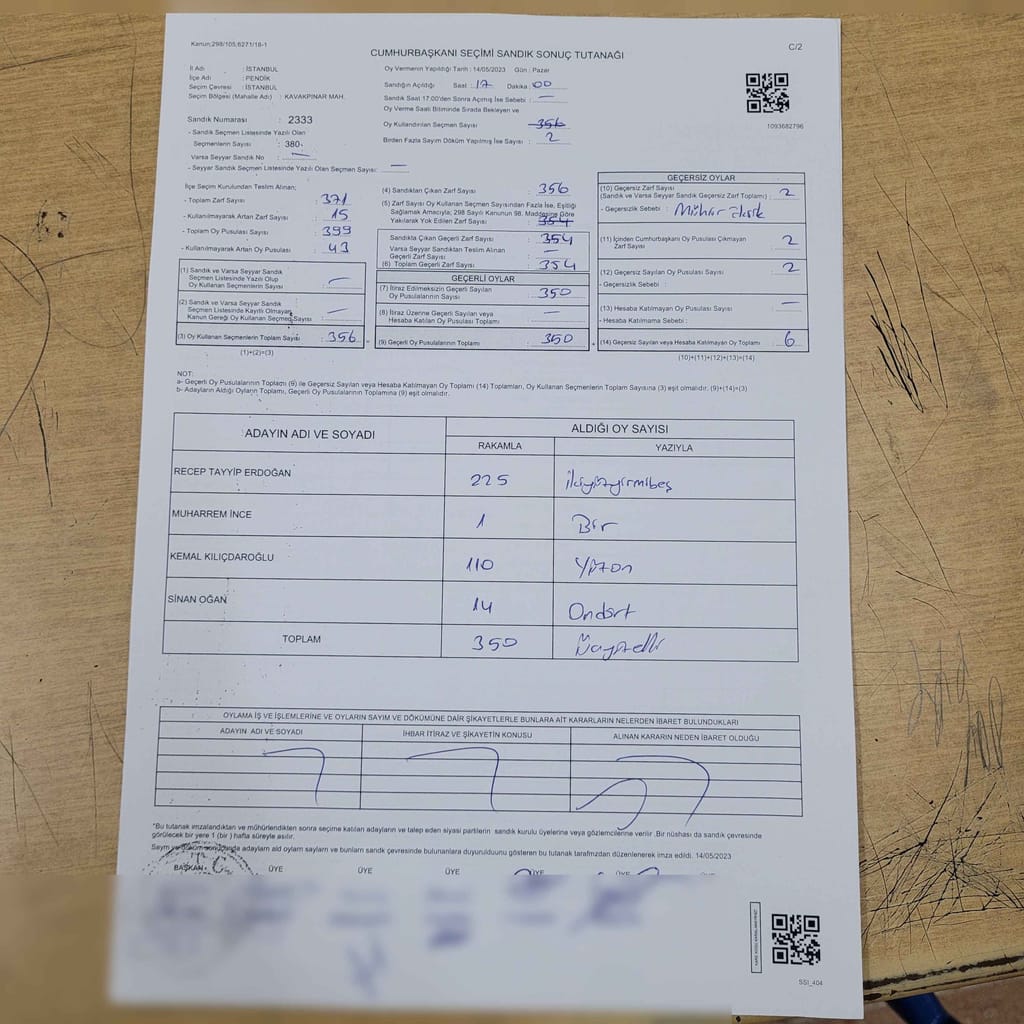 Kanun:298/105;6271/18-1
C/2
CUMHURBAŞKANI SEÇİMİ SANDIK SONUÇ TUTANAĞI
İl Adı : İSTANBUL
İlçe Adı : PENDİK
Seçim Çevresi : İSTANBUL
Seçim Bölgesi (Mahalle Adı) : KAVAKPINAR MAH.
Sandık Numarası : 2333
- Sandık Seçmen Listesinde Yazılı Olan
Seçmenlerin Sayısı : 380
Varsa Seyyar Sandık No : —
- Seyyar Sandık Seçmen Listesinde Yazılı Olan Seçmen Sayısı: —
Oy Vermenin Yapıldığı Tarih : 14/05/2023 Gün : Pazar
Sandığın Açıldığı Saat : 17 Dakika : 00
Sandık Saat 17:00'den Sonra Açılmış İse Sebebi : —
Oy Verme Saati Bitiminde Sırada Bekleyen ve
Oy Kullandırılan Seçmen Sayısı 356
Birden Fazla Sayım Döküm Yapılmış İse Sayısı : 2
1093682796
İlçe Seçim Kurulundan Teslim Alınan;
- Toplam Zarf Sayısı : 371
- Kullanılmayarak Artan Zarf Sayısı : 15
- Toplam Oy Pusulası Sayısı : 399
- Kullanılmayarak Artan Oy Pusulası : 43
(1) Sandık ve Varsa Seyyar Sandık
Seçmen Listesinde Yazılı Olup
Oy Kullanan Seçmenlerin Sayısı : —
(2) Sandık ve Varsa Seyyar Sandık
Seçmen Listesinde Kayıtlı Olmayan
Kanun Gereği Oy Kullanan Seçmen Sayısı : —
(3) Oy Kullanan Seçmenlerin Toplam Sayısı : 356
(1)+(2)=(3)
(4) Sandıktan Çıkan Zarf Sayısı : 356
(5) Zarf Sayısı Oy Kullanan Seçmen Sayısından Fazla İse, Eşitliği
Sağlamak Amacıyla; 298 Sayılı Kanunun 98. Maddesine Göre
Yakılarak Yok Edilen Zarf Sayısı : 354
Sandıkta Çıkan Geçerli Zarf Sayısı : 354
Varsa Seyyar Sandıktan Teslim Alınan
Geçerli Zarf Sayısı : —
(6) Toplam Geçerli Zarf Sayısı : 354
GEÇERLİ OYLAR
(7) İtiraz Edilmeksizin Geçerli Sayılan
Oy Pusulalarının Sayısı : 350
(8) İtiraz Üzerine Geçerli Sayılan veya
Hesaba Katılan Oy Pusulası Toplamı : —
(9) Geçerli Oy Pusulalarının Toplamı : 350
GEÇERSİZ OYLAR
(10) Geçersiz Zarf Sayısı
(Sandık ve Varsa Seyyar Sandık Geçersiz Zarf Toplamı) : 2
- Geçersizlik Sebebi : Mühür
(11) İçinden Cumhurbaşkanı Oy Pusulası Çıkmayan
Zarf Sayısı : 2
(12) Geçersiz Sayılan Oy Pusulası Sayısı : 2
- Geçersizlik Sebebi :
(13) Hesaba Katılmayan Oy Pusulası Sayısı : —
- Hesaba Katılmama Sebebi :
(14) Geçersiz Sayılan veya Hesaba Katılmayan Oy Toplamı : 6
(10)+(11)+(12)+(13)=(14)
NOT:
a- Geçerli Oy Pusulalarının Toplamı (9) ile Geçersiz Sayılan veya Hesaba Katılmayan Oy Toplamı (14) Toplamları, Oy Kullanan Seçmenlerin Toplam Sayısına (3) eşit olmalıdır. (9)+(14)=(3)
b- Adayların Aldığı Oyların Toplamı, Geçerli Oy Pusulalarının Toplamına (9) eşit olmalıdır.
ADAYIN ADI VE SOYADI
ALDIĞI OY SAYISI
RAKAMLA
YAZIYLA
RECEP TAYYİP ERDOĞAN 225 ikiyüzyirmibeş
MUHARREM İNCE 1 Bir
KEMAL KILIÇDAROĞLU 110 Yüzon
SİNAN OĞAN 14 Ondört
TOPLAM 350 Üçyüzelli
OYLAMA İŞ VE İŞLEMLERİNE VE OYLARIN SAYIM VE DÖKÜMÜNE DAİR ŞİKAYETLERLE BUNLARA AİT KARARLARIN NELERDEN İBARET BULUNDUKLARI
ADAYIN ADI VE SOYADI
İHBAR İTİRAZ VE ŞİKAYETİN KONUSU
ALINAN KARARIN NEDEN İBARET OLDUĞU
"Bu tutanak imzalandıktan ve mühürlendikten sonra seçime katılan adayların ve talep eden siyasi partilerin sandık kurulu üyelerine veya gözlemcilerine verilir .Bir nüshası da sandık çevresinde
görülecek bir yere 1 (bir ) hafta süreyle asılır.
Sayım ve döküm sonucunda adayların aldığı oyların sayıları ve bunların sandık çevresinde bulunanlara duyurulduğunu gösteren bu tutanak tarafımızdan düzenlenerek imza edildi. 14/05/2023
T.C.
BAŞKAN ÜYE ÜYE ÜYE ÜYE ÜYE
SSI_404